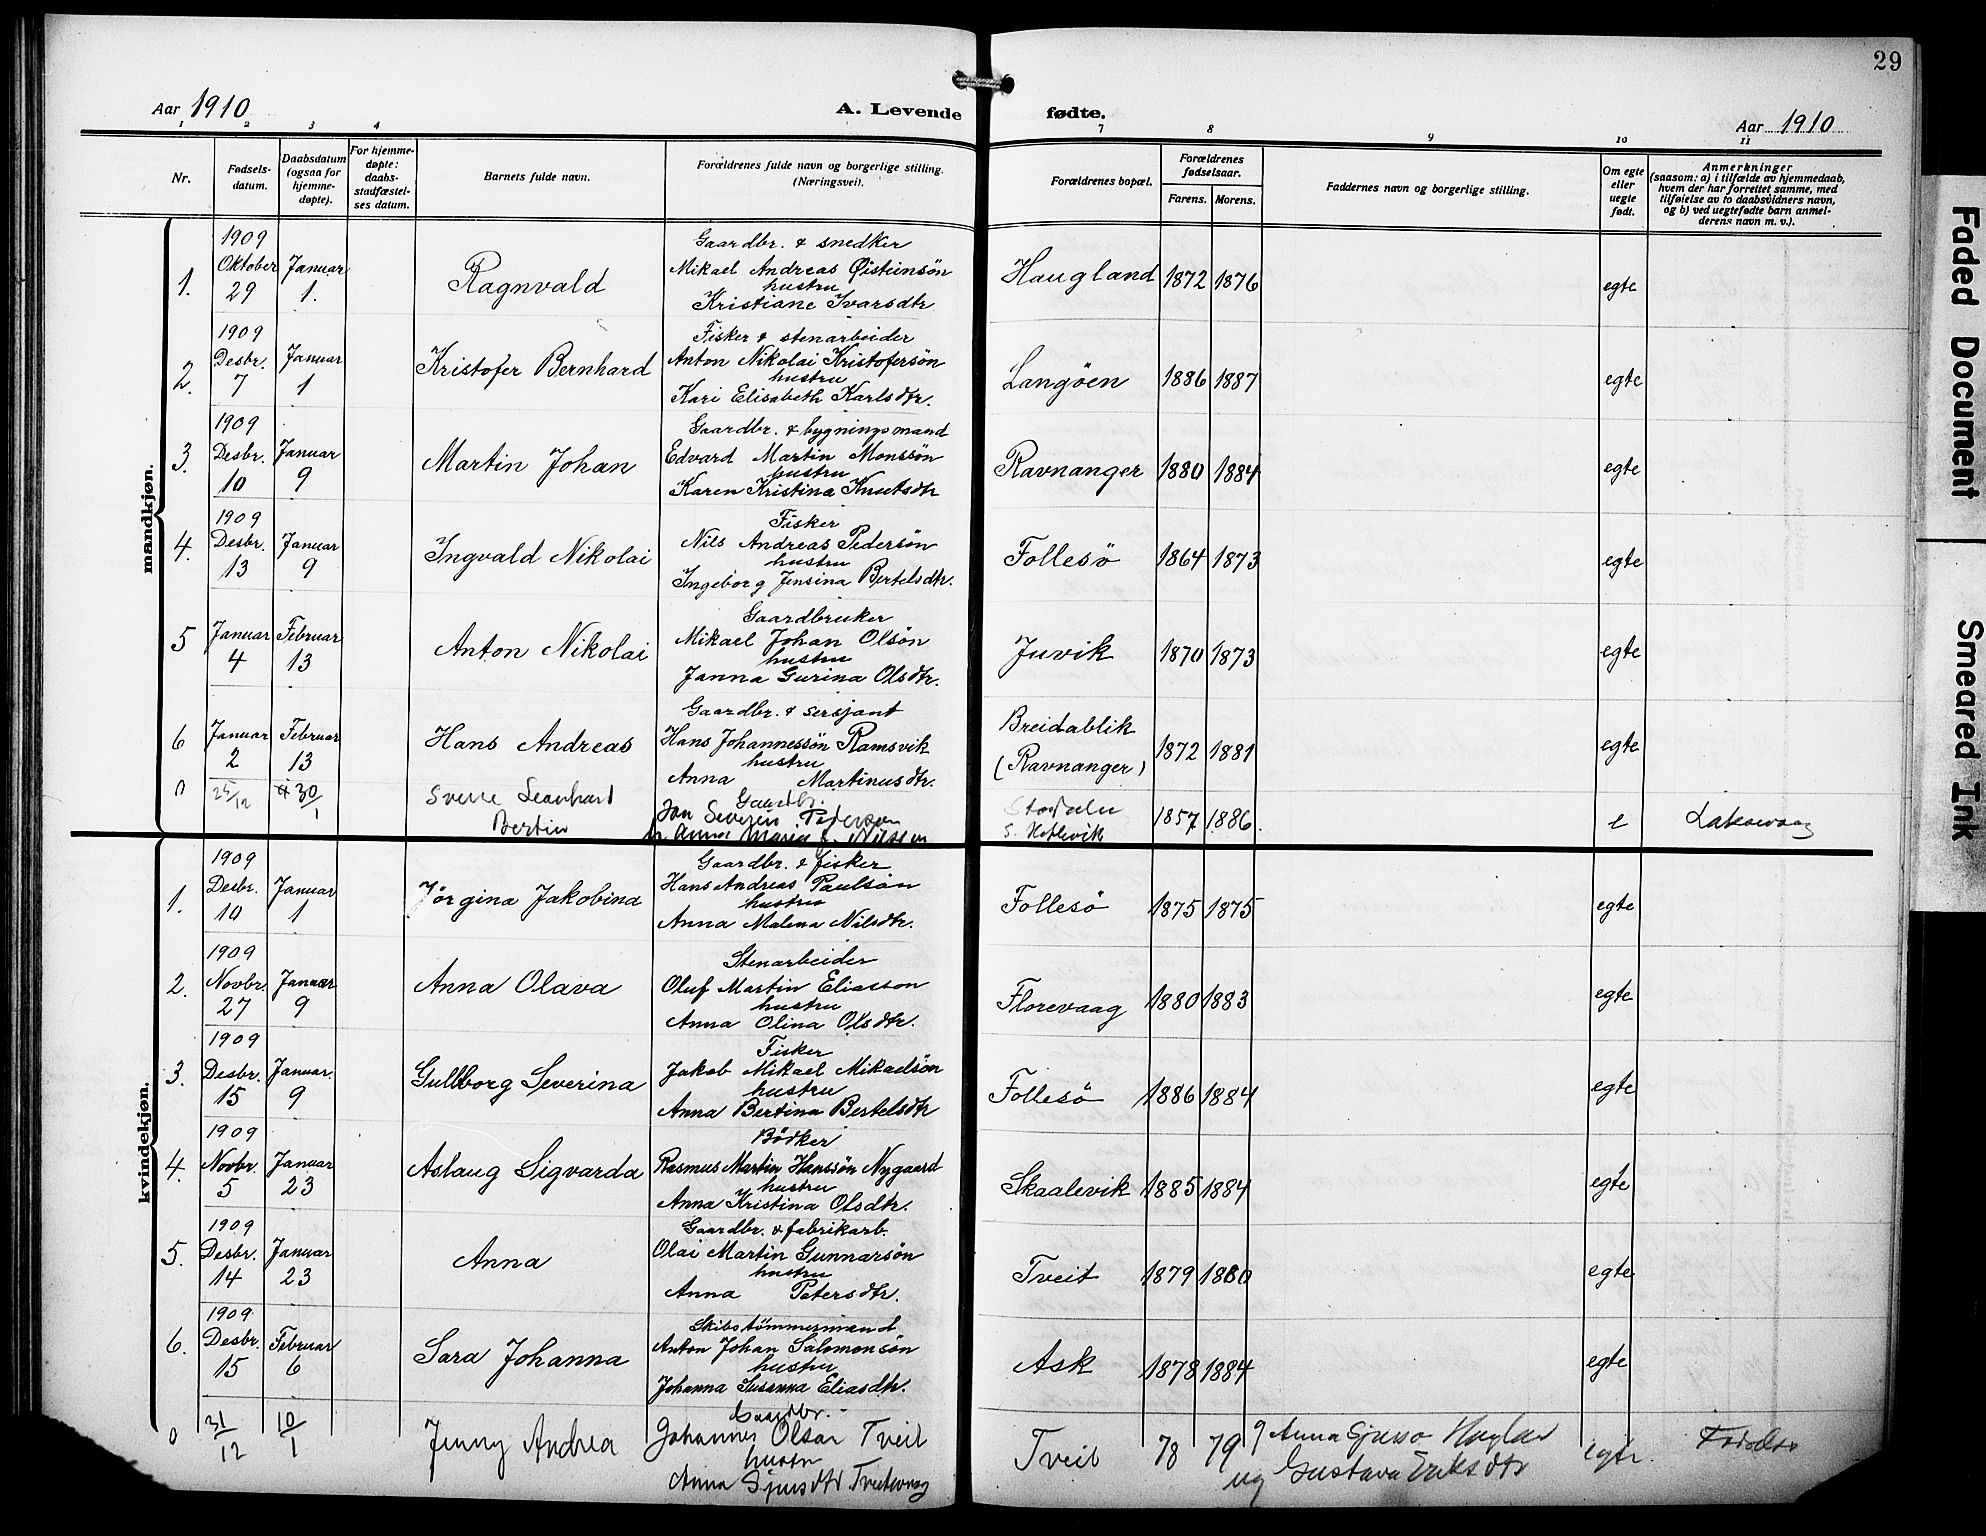 29
Aar 1910
A. Levende fødte.
Aar 1910
1 2 3 4 7 8 9 10 11
Nr.
Fødsels-
datum.
Daabsdatum
(ogsaa for
hjemme-
døpte).
For hjemme-
døpte:
daabs-
stadfæstel-
ses datum.
Barnets fulde navn.
Forældrenes fulde navn og borgerlige stilling.
(Næringsvei).
Forældrenes bopæl.
Forældrenes
fødselsaar.
Farens. Morens.
Faddernes navn og borgerlige stilling.
Om egte
eller
uegte
født.
Anmerkninger
(saasom: a) i tilfælde av hjemmedaab,
hvem der har forrettet samme, med
tilføielse av to daabsvidners navn,
og b) ved uegtefødte barn anmel-
derens navn m. v.).
mandkjøn.
1909
Gaardbr. & snedker
1. Oktober 29 Januar 1. Ragnvald Mikael Andreas Øisteinsön Haugland 1872 1876 egte
hustru
Kristiane Ivarsdtr
1909
Fisker & stenarbeider
2. Desbr. 7 Januar 1 Kristofer Bernhard Anton Nikolai Kristofersön Langöen 1886 1887 egte
hustru
Kari Elisabeth Karlsdtr.
1909
Gaardbr. & bygningsmand
3. Desbr. 10 Januar 9 Martin Johan Edvard Martin Monssön Ravnanger 1880 1884 egte
hustru
Karen Kristina Knutsdtr
1909
Fisker
4. Desbr. 13 Januar 9 Ingvald Nikolai Nils Andreas Pedersön Follesö 1864 1873 egte
hustru
Ingeborg Jensina Bertelsdtr.
Gaardbruker
5 Januar 4 Februar 13 Anton Nikolai Mikael Johan Olsön Juvik 1870 1873 egte
hustru
Janna Gurina Olsdtr.
Gaardbr. & sersjant
6 Januar 2 Februar 13 Hans Andreas Hans Johannessön Ramsvik Breidablik (Ravnanger) 1872 1881 egte
hustru
Anna Martinusdtr.
Gaardbr.
0 25/12 30/1 Sverre Leonhard Bertin Jon Severin Pederson 1857 1886 e
Anna Maria f. Nilsen
kvindekjøn.
1909
Gaardbr. & fisker
1. Desbr. 10 Januar 1 Jörgina Jakobina Hans Andreas Paulsön Follesö 1875 1875 egte
hustru
Anna Malena Nilsdtr.
1909
Stenarbeider
2. Novbr. 27 Januar 9 Anna Olava Oluf Martin Eliasson Florevaag 1880 1883 egte
hustru
Anna Olina Olsdtr.
1909
Fisker
3. Desbr. 15 Januar. 9 Gullborg Severina Jakob Mikael Mikaelsön Follesö 1886 1884 egte
hustru
Anna Bertina Bertelsdtr
1909
Bödker
4. Novbr. 5 Januar 23 Aslaug Sigvarda Rasmus Martin Hanssön Nygaard Skaalevik 1885 1884 egte
hustru
Anna Kristina Olsdtr.
1909
Gaardbr. & fabrikarb.
5. Desbr. 14 Januar 23 Anna Olai Martin Gunnarsön Tveit 1879 1880 egte
hustru
Anna Petersdtr.
1909
Skibstömmermand
6. Desbr. 15 Februar 6 Sara Johanna Anton Johan Salomonsön Ask 1878 1884 egte
hustru
Johanna Susanna Eliasdtr.
Gaardbr.
0 31/12 10/1 Jenny Andrea Johannes Olsen Tveit Tveit 78 79 Anna egte
hustru
Anna Sjursdtr Gustava Eriksdtr
Faded Document
Smeared Ink